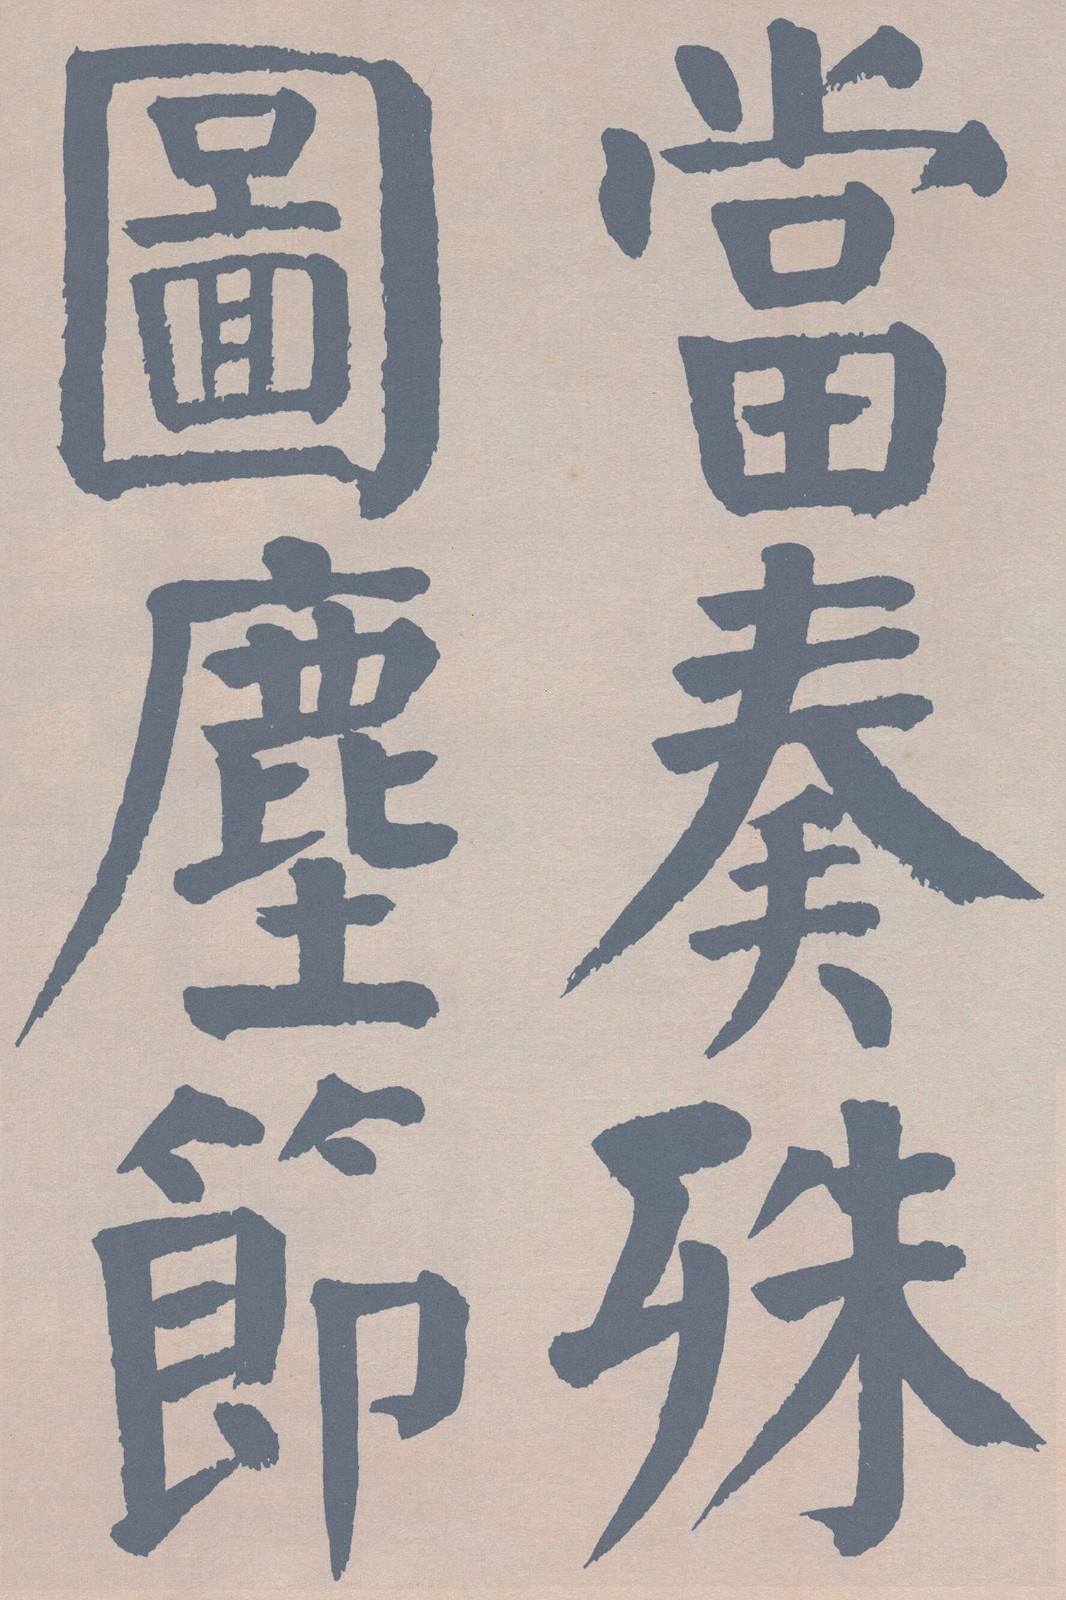 當奏殊
圖塵節